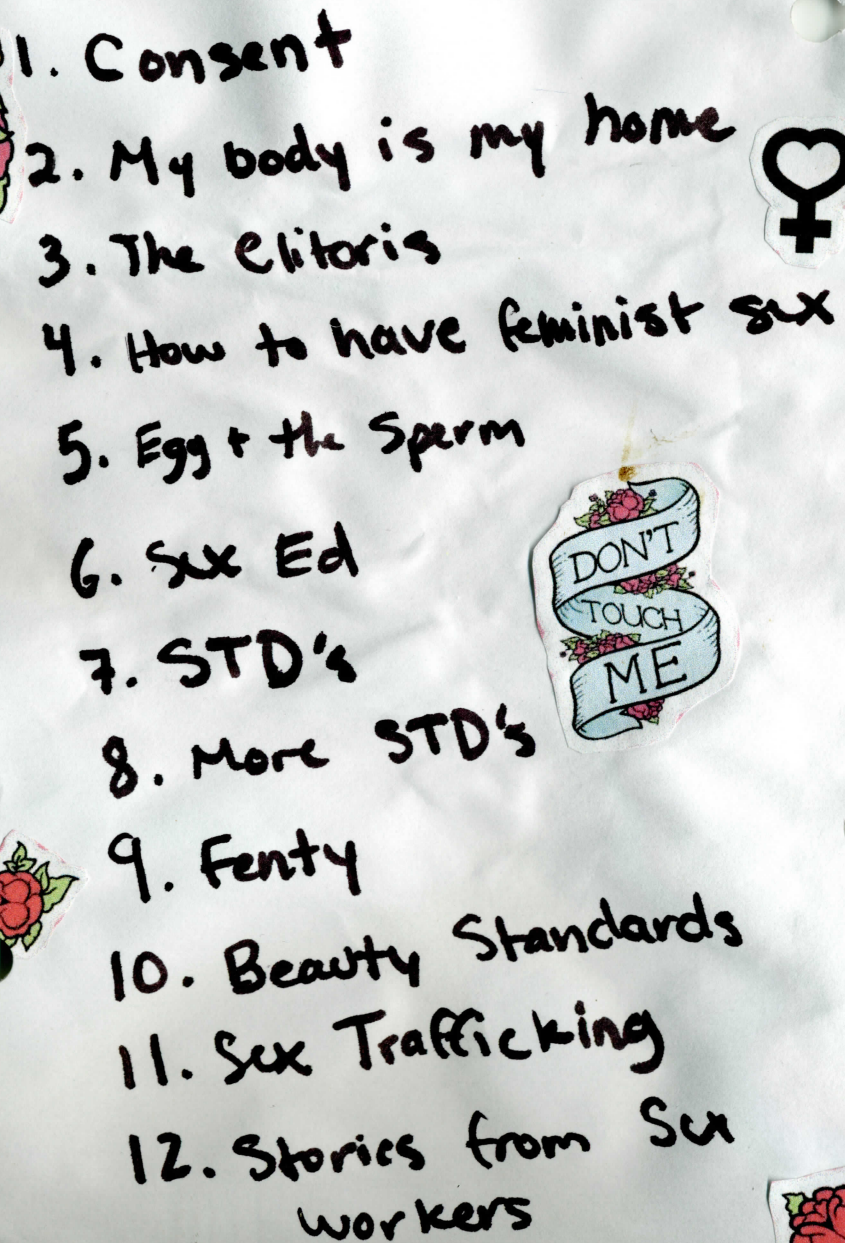 1. Consent
2. My body is my home
3. The Clitoris
4. How to have feminist sex
5. Egg + the Sperm
6. Sex Ed
DON'T
TOUCH
ME
7. STD's
8. More STD's
9. Fenty
10. Beauty Standards
11. Sex Trafficking
12. Stories from Sex
workers